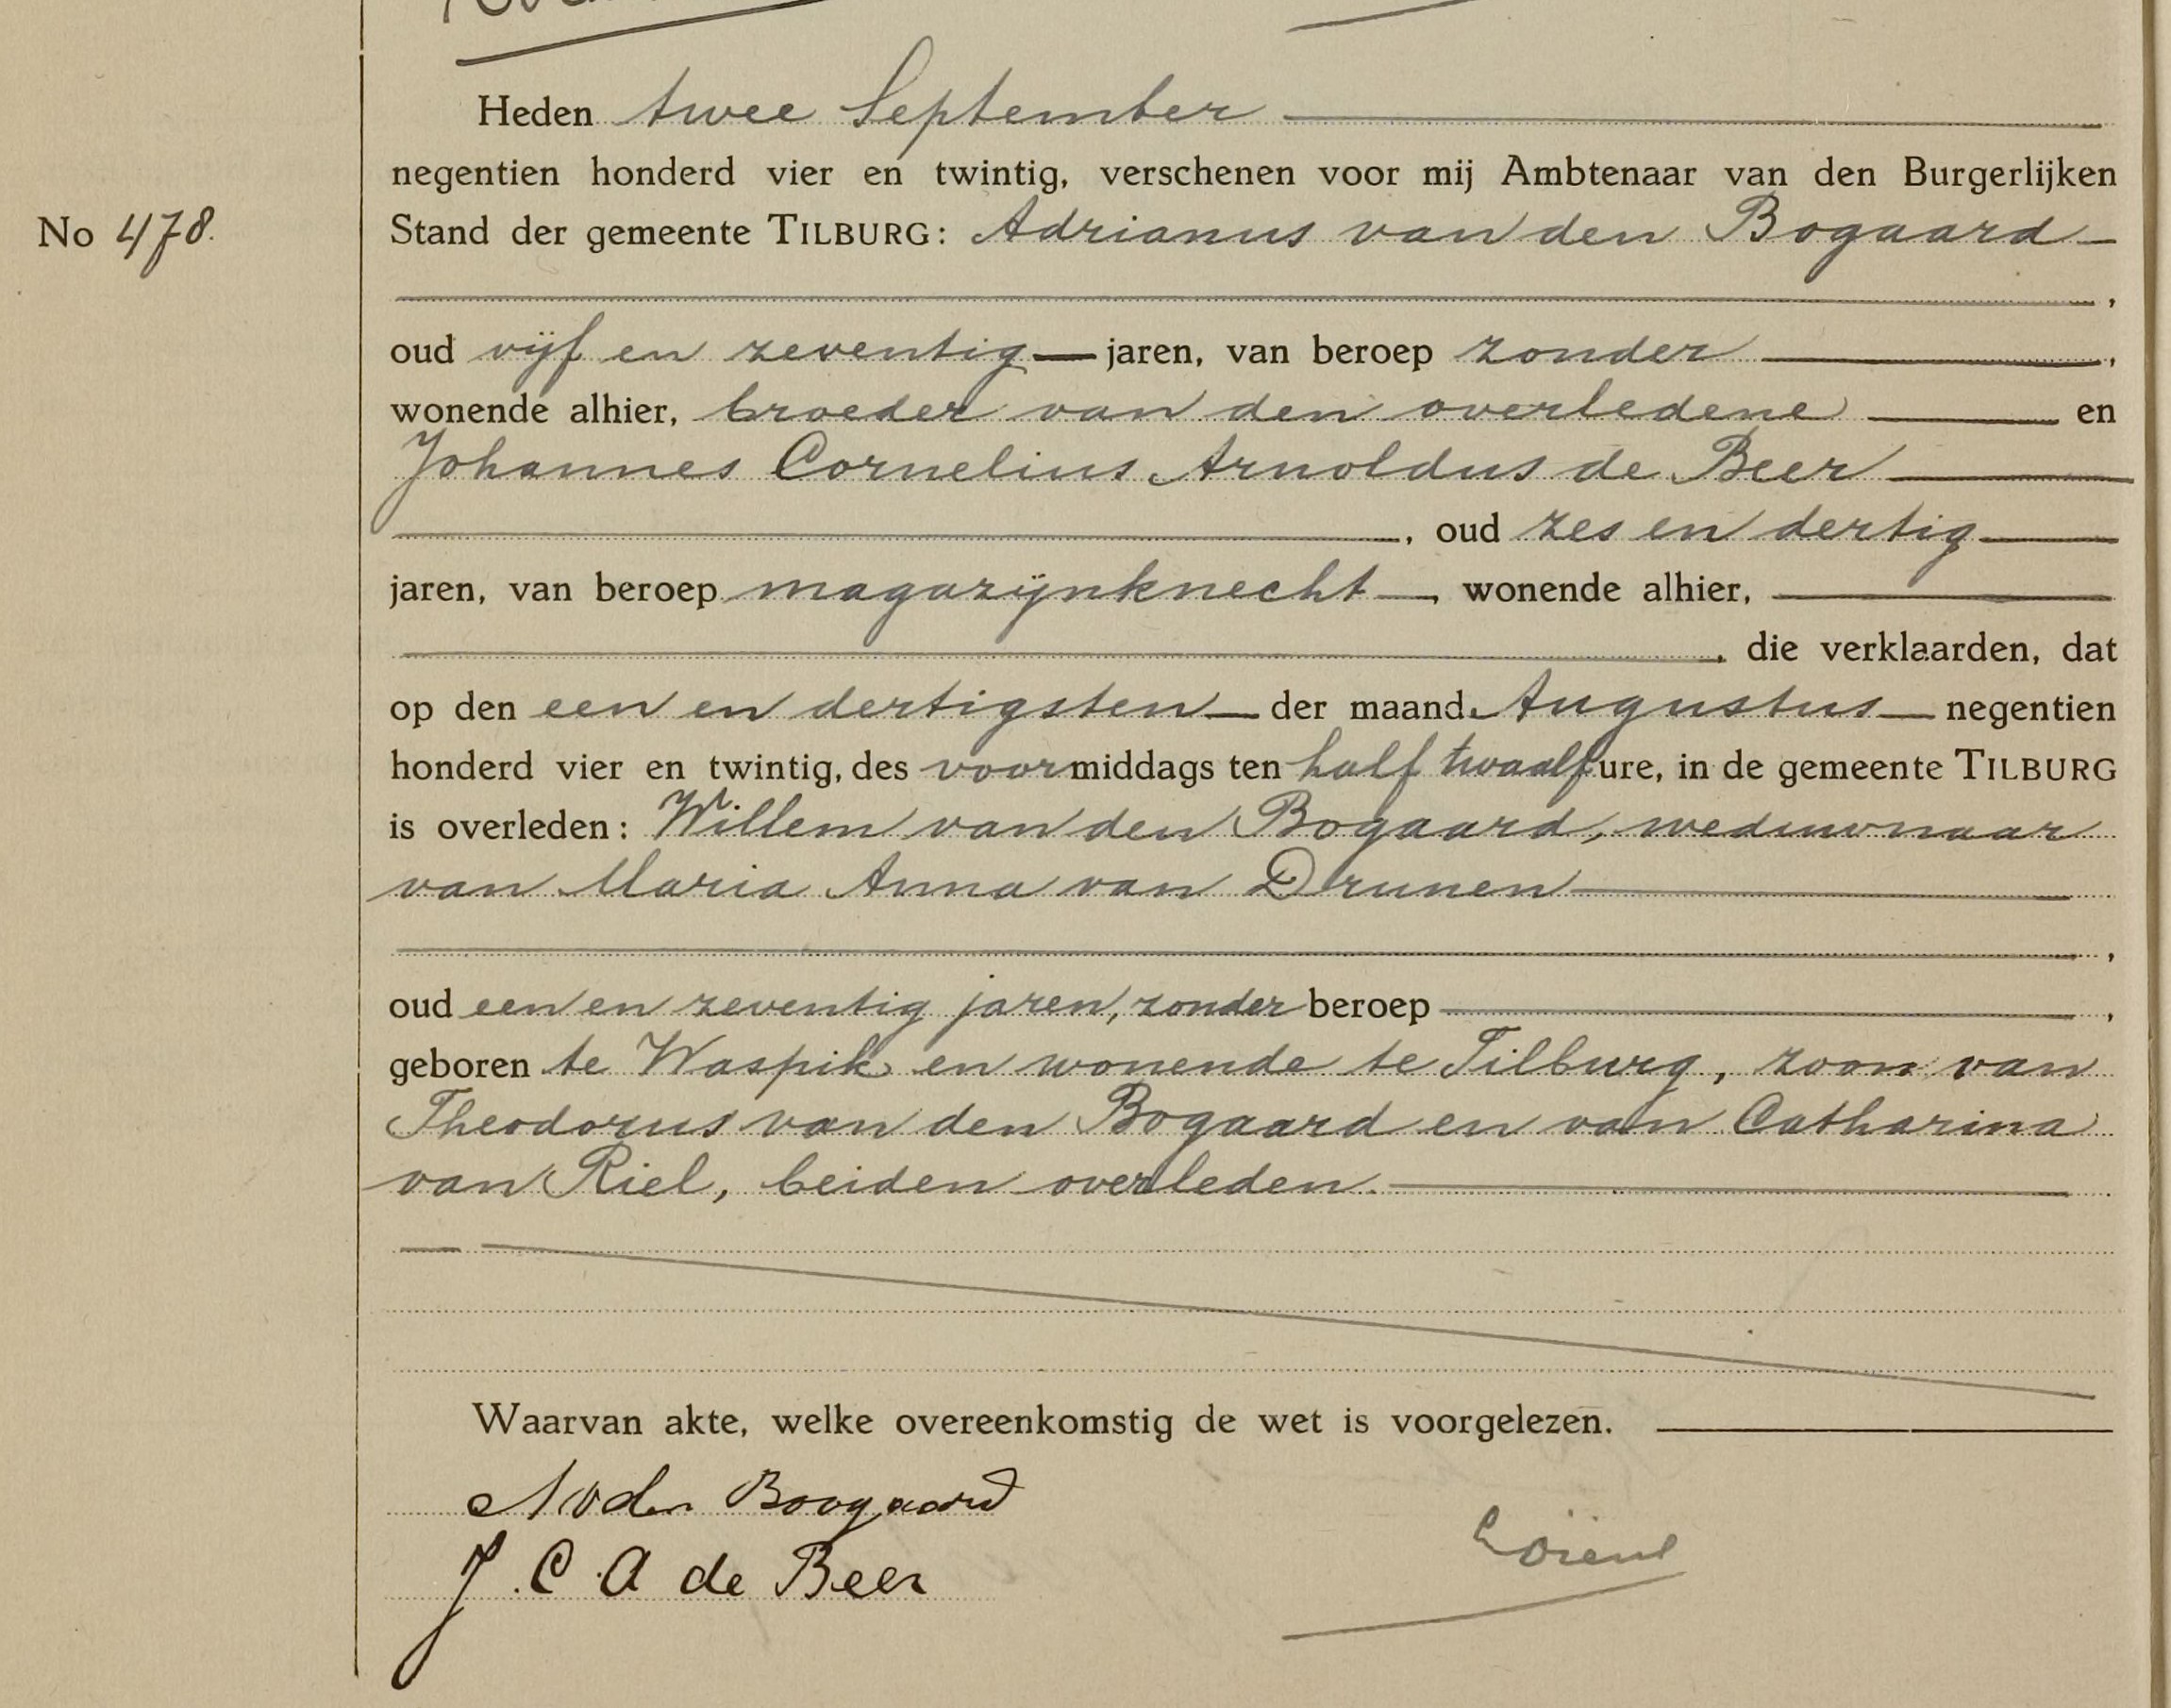 Heden twee September
negentien honderd vier en twintig, verschenen voor mij Ambtenaar van den Burgerlijken
No 478. Stand der gemeente TILBURG: Adrianus van den Bogaard
,
oud vijf en zeventig jaren, van beroep zonder ,
wonende alhier, broeder van den overledene en
Johannes Cornelius Arnoldus de Beer
, oud zes en dertig
jaren, van beroep magazijnknecht , wonende alhier,
, die verklaarden, dat
op den een en dertigsten der maand Augustus negentien
honderd vier en twintig, des voormiddags ten half twaalf ure, in de gemeente TILBURG
is overleden: Willem van den Bogaard, weduwnaar
van Maria Anna van Drunen
,
oud een en zeventig jaren, zonder beroep ,
geboren te Waspik en wonende te Tilburg, zoon van
Theodorus van den Bogaard en van Catharina
van Riel, beiden overleden.
Waarvan akte, welke overeenkomstig de wet is voorgelezen.
A v den Boogaard
J. C. A de Beer